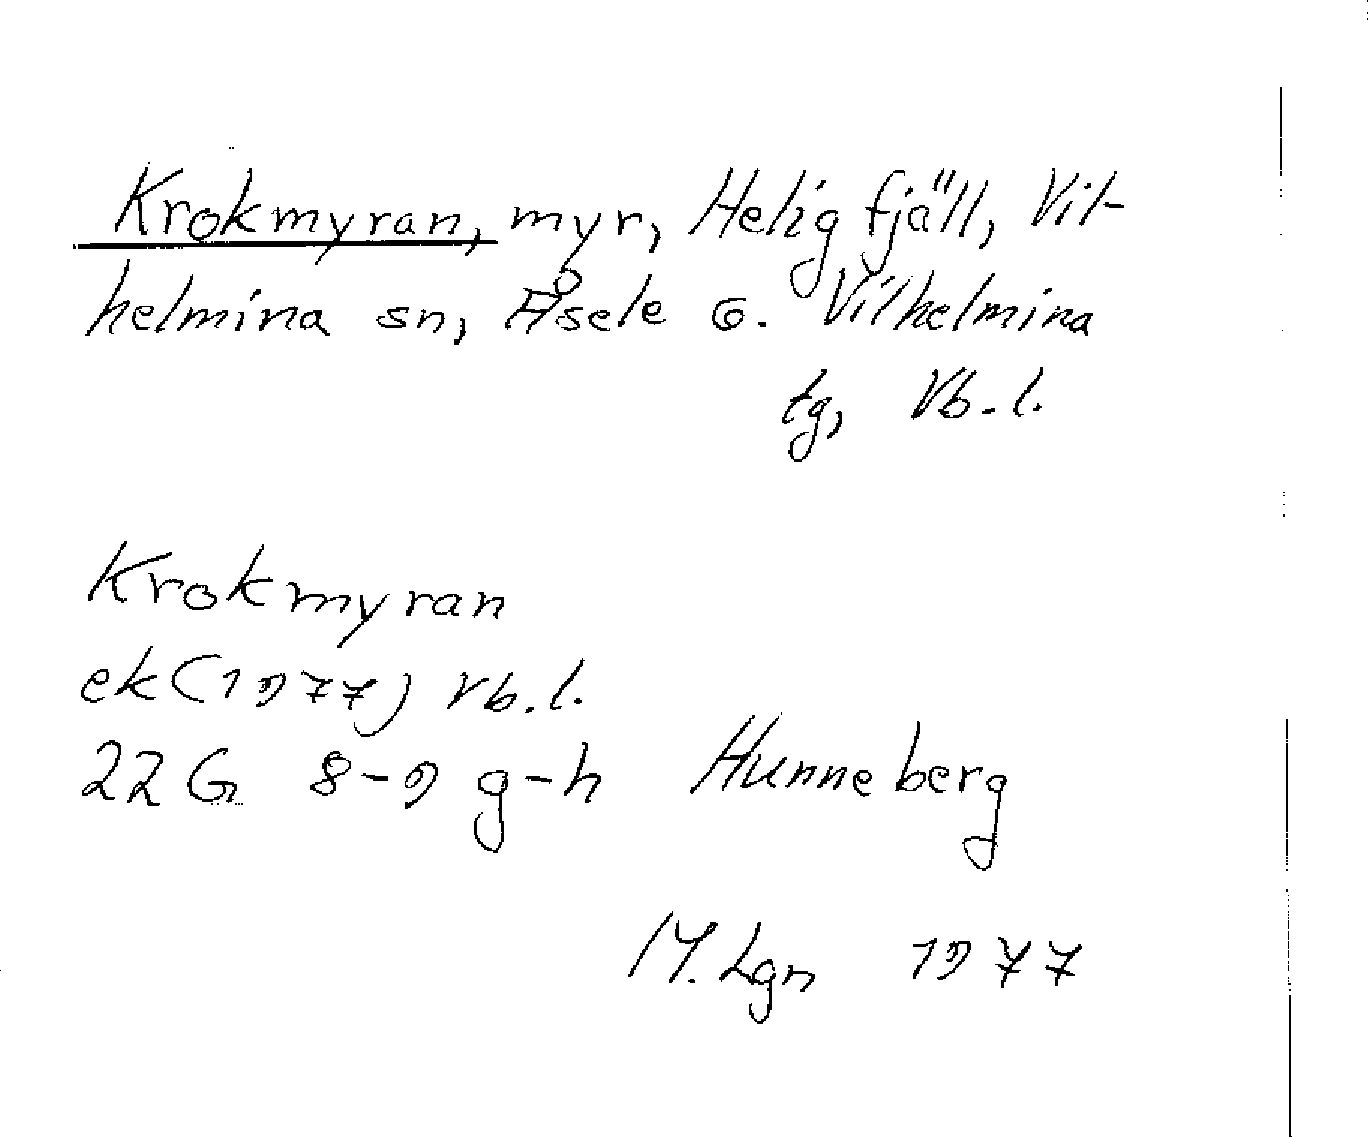 Krokmyran, myr, Heligfjäll, Vil-
helmina sn, Åsele o. Vilhelmina
tg, Vb.l.
Krokmyran
ek(1977) Vb.l.
22G 8-9 g-h Hunneberg
M.Lgn 1977